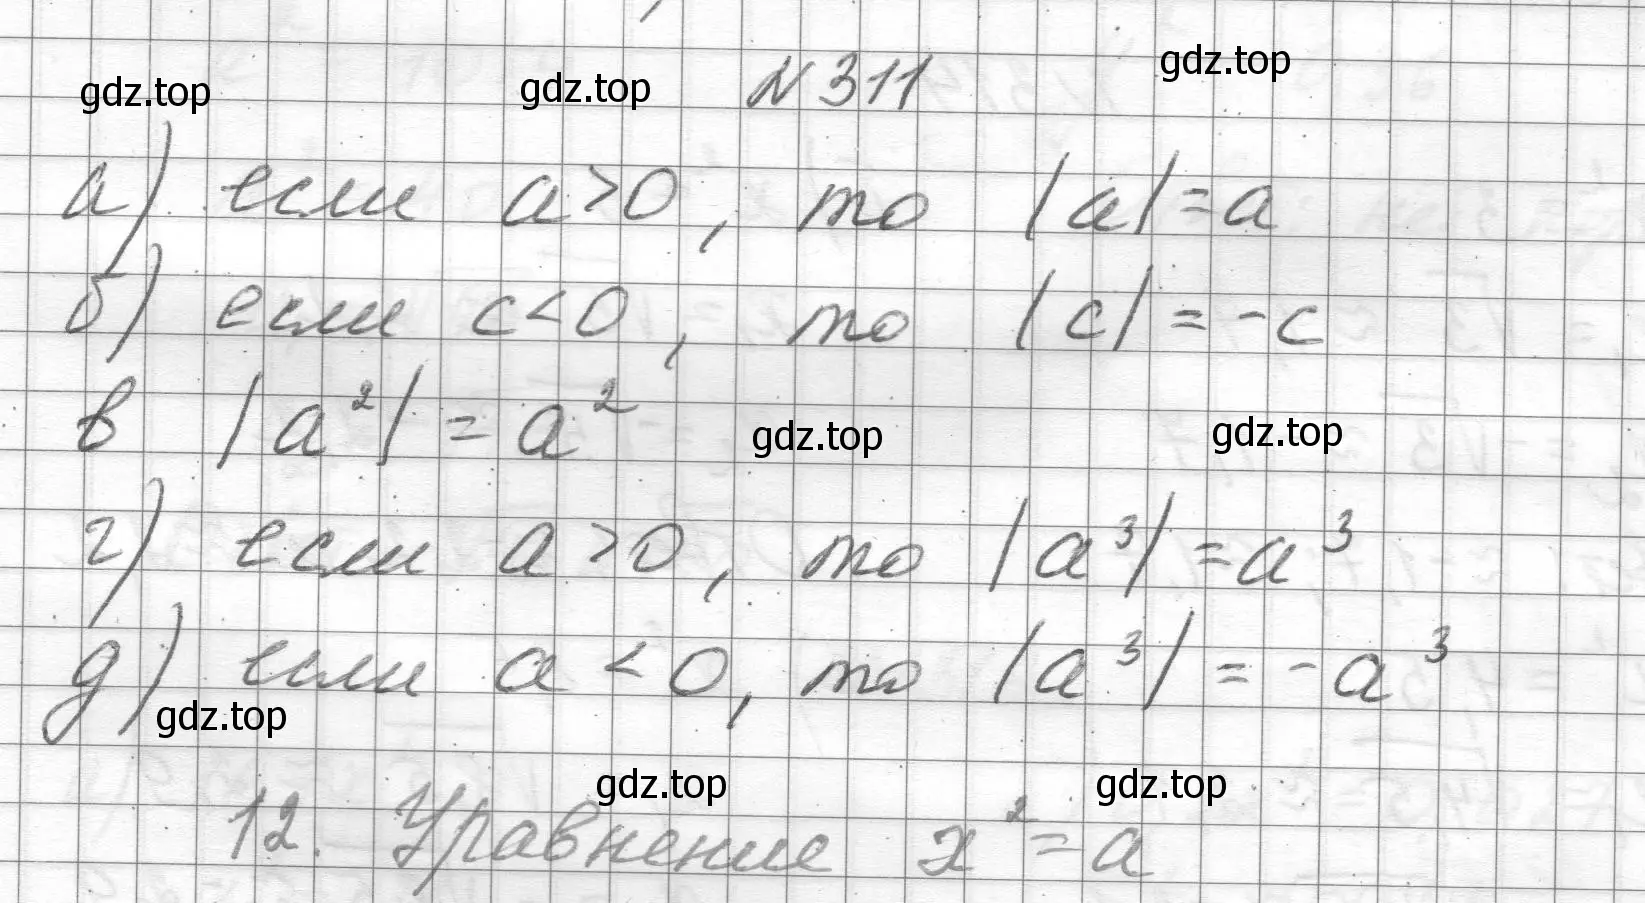 gdz.top gdz.top №311 gdz.top
а) если a>0, то |a|=a
б) если c<0, то |c|=-c
в |a²|=a²
gdz.top gdz.top
г) если a>0, то |a³|=a³
д) если a<0, то |a³|=-a³
gdz.top
gdz.top gdz.top
12. Уравнение x²=a